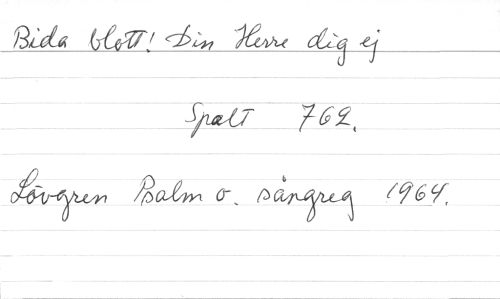 Bida blott! Din Herre dig ej
Spalt 762.
Lövgren Psalm o. sångreg 1964.